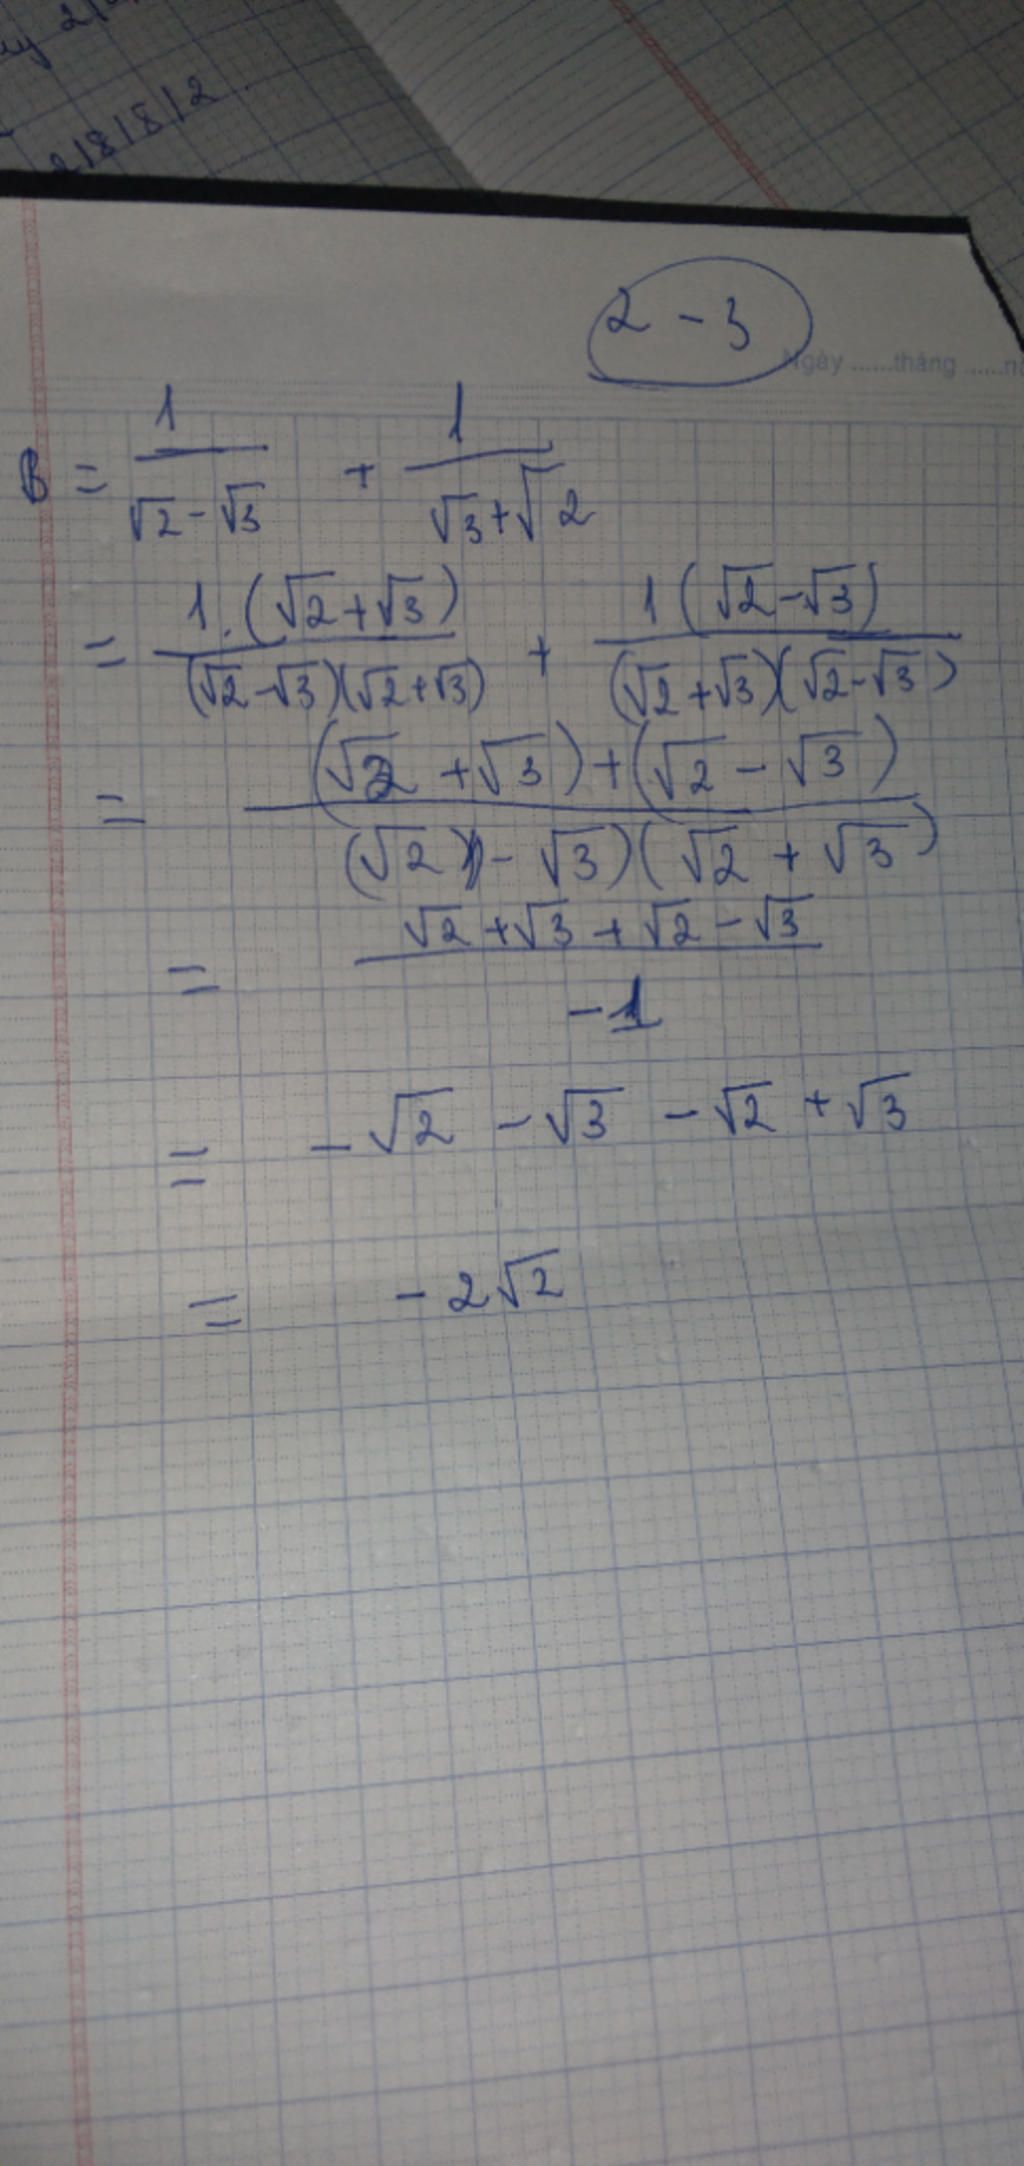 2/8/8/2
2 - 3
Ngày ......tháng ......
B = 1/(√2 - √3) + 1/(√3 + √2)
= 1.(√2 + √3)/((√2 - √3)(√2 + √3)) + 1(√2 - √3)/((√2 + √3)(√2 - √3))
= ((√2 + √3) + (√2 - √3))/((√2 - √3)(√2 + √3))
= (√2 + √3 + √2 - √3)/(-1)
= -√2 - √3 - √2 + √3
= -2√2